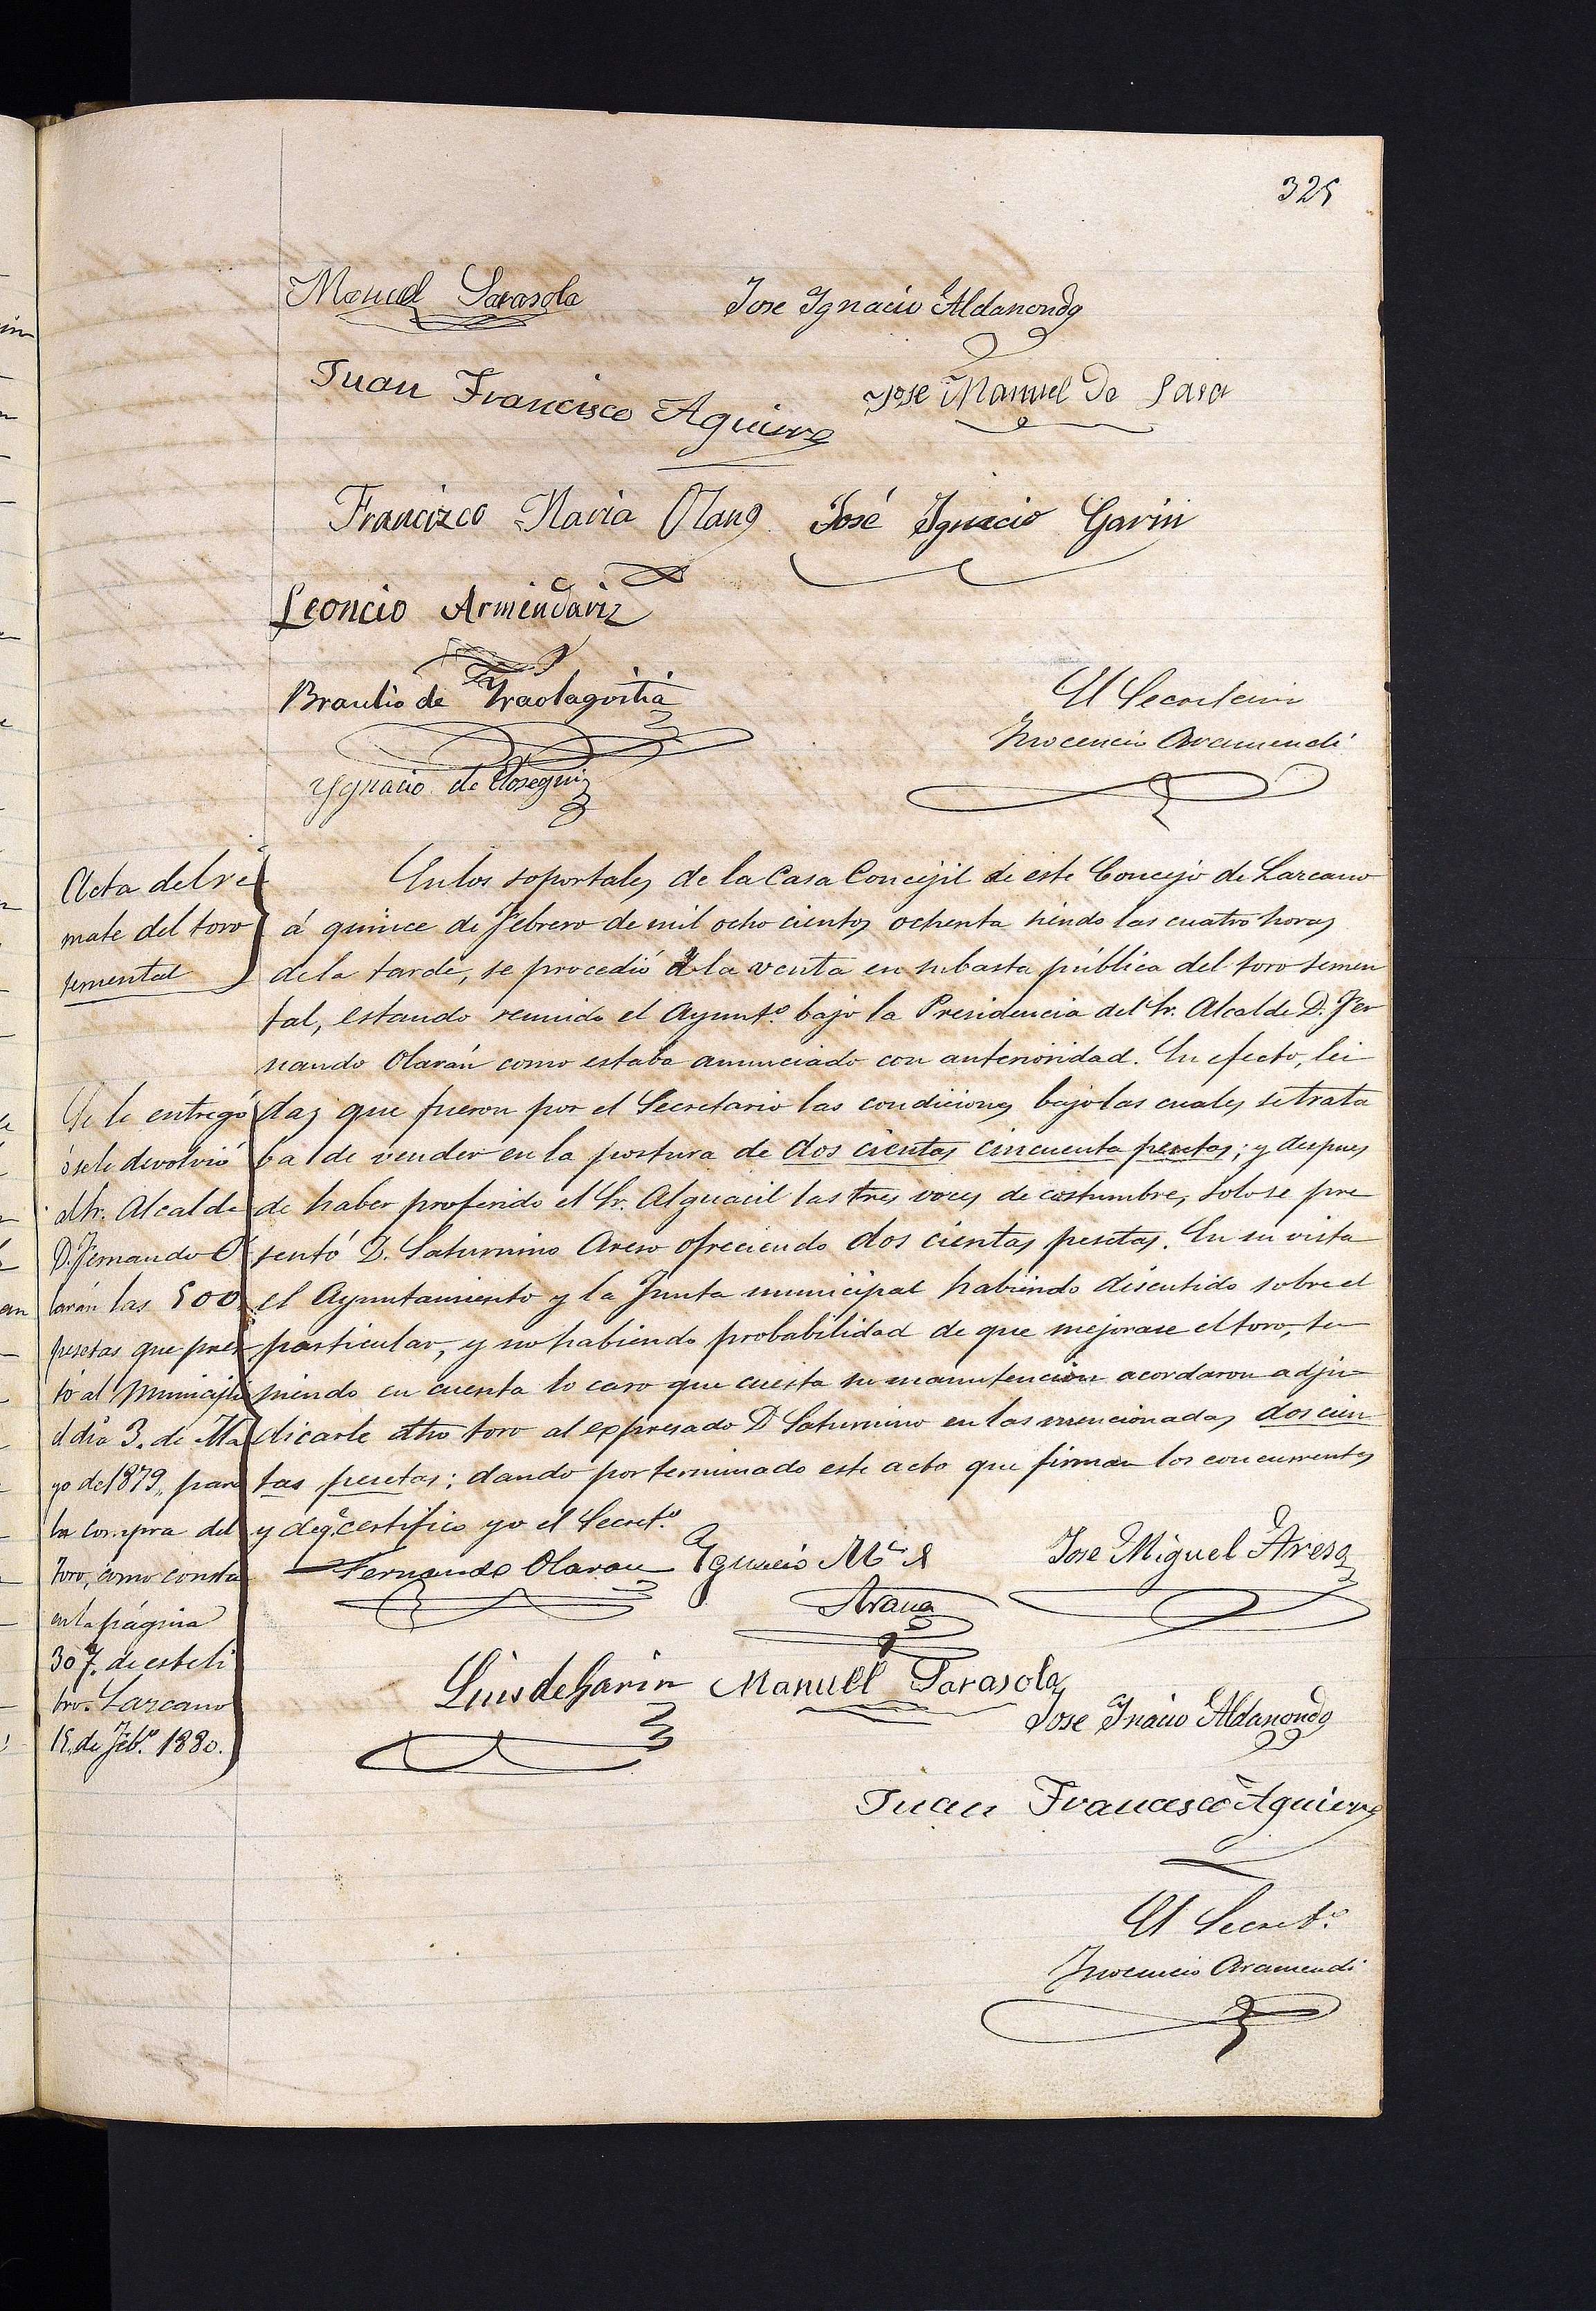 325
Manuel Sarasola
Jose Ygnacio Aldanondo
Juan Francisco Aguirre
Jose Manuel de Lasa
Francizco Maria Olano
José Ygnacio Garin
Leoncio Armendariz
Braulio de Yraolagoitia
El Secretario
Inocencio Aramendi
Ygnacio de
Acta del re
mate del toro
semental
En los soportales de la Casa Concejil de este Concejo de Lazcano
á quince de Febrero de mil ocho cientos ochenta siendo las cuatro horas
de la tarde, se procedió á la venta en subasta pública del toro semen
tal, estando reunido el Ayunt.º bajo la Presidencia del Sr. Alcalde D. Fer
nando Olarán como estaba anunciado con anterioridad. En efecto, lei
das que fueron por el Secretario las condiciones bajo las cuales se trata
ba de vender en la postura de dos cientas cincuenta pesetas; y despues
de haber proferido el Sr. Alguacil las tres voces de costumbre, solo se pre
sentó D. Saturnino Areso ofreciendo dos cientas pesetas. En su vista
el Ayuntamiento y la Junta municipal habiendo discutido sobre el
particular, y no habiendo probabilidad de que mejorase el toro, te
niendo en cuenta lo caro que cuesta su manutencion acordaron adju
dicarle dho toro al expresado D Saturnino en las mencionadas dos cien
tas pesetas; dando por terminado este acto que firman los concurrentes
y de q.e certifico yo el Secret.º
Se le entregó
ó se le devolvió
al Sr. Alcalde
D. Fernando O
larán las 500
pesetas que pres
tó al Municipio
el dia 3. de Ma
yo de 1879, para
la compra del
toro, como consta
en la página
307. de este li
bro. Lazcano
15. de Feb.º 1880.
Fernando Olaran
Ygnacio M.ª
Arana
Jose Miguel Areso
Luis de Garin
Manuel Sarasola
Jose Inacio Aldanondo
Juan Francisco Aguirre
El Secret.º
Inocencio Aramendi